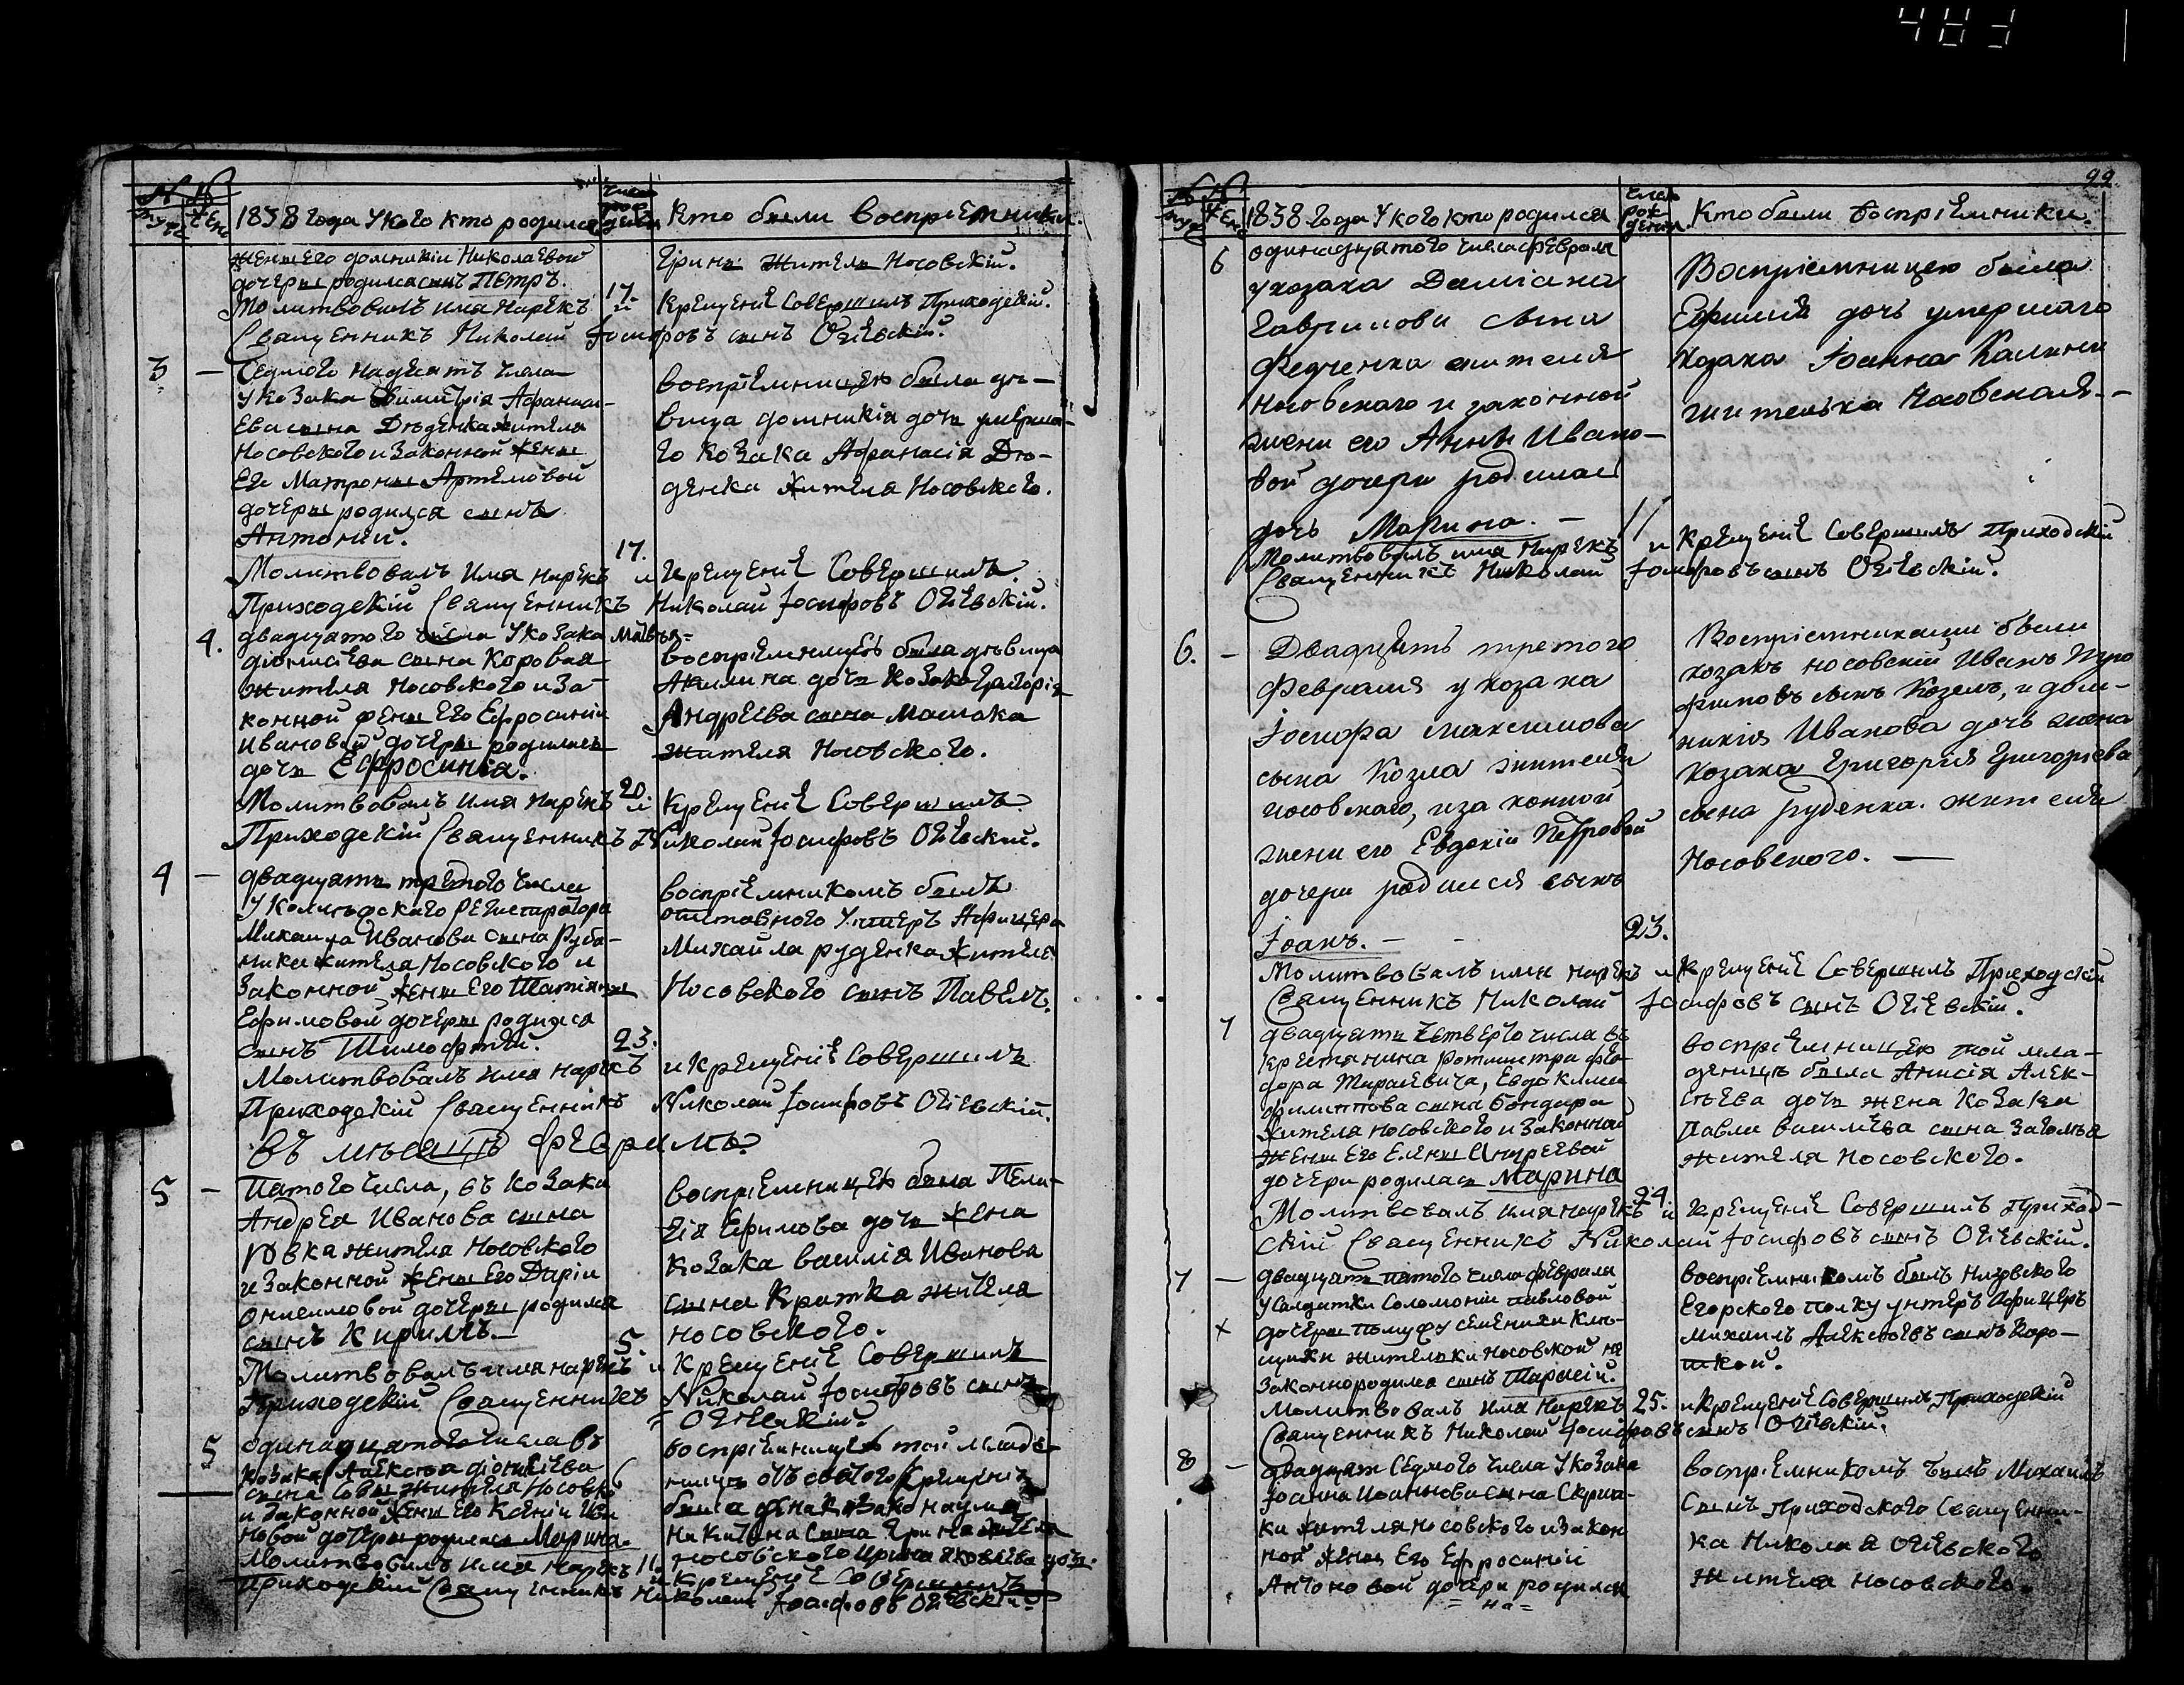 483
№ №
муж жен
1838 года У кого кто родился
число рождения
Кто были воспріемники.
жены его домникіи Николаевой
дочеры родился сынъ Петръ.
Молитвовалъ имя нарекъ
Священникъ Николай
17.
и
Гринь жители Носовскій.
крещеніе Совершилъ Приходскій.
Іосифовъ сынъ Огіевскій.
3 —
Седмого надесять числа
У козака Димитрія Афанаси-
Ева сына Дѣденка жителя
Носовского и законной жены
Его Матроны Артемовой
дочеры родился сынъ
Антоній.
Молитвовалъ имя нарекъ
Приходскій Священникъ
17.
и
воспріемницею была дѣ-
вица домникія дочь умерша-
го козака Афанасія Дѣ-
денка жителя Носовского.
крещеніе Совершилъ.
Николай Іосифовъ Огіевскій.
4.
двадцатого числа У козака Матвѣя
діонисіева сына Коровая
жителя Носовского и за-
конной жены Его Ефросиніи
Ивановой дочеры родилась
дочь Ефросинія.
Молитвовалъ имя нарекъ
Приходскій Священникъ
20.
и
воспріемницею была дѣвица
Акилина дочь козака Григорія
Андреева сына Машока
жителя Носовского.
крещеніе Совершилъ
Николай Іосифовъ Огіевскій.
4 —
двадцать третого числа
У Колижского Регистратора
Михаила Иванова сына Руба-
ника жителя Носовского и
Законной жены Его Татіяны
Ефимовой дочеры родился
сынъ Тимофтей.
Молитвовалъ имя нарекъ
Приходскій Священникъ
23.
воспріемникомъ былъ
отставного Унтеръ Афицера
Михайла руденка жителя
Носовского сынъ Павелъ.
и крещеніе Совершилъ
Николай Іосифовъ Огіевскій.
Въ мнѣсяцѣ Февралѣ
5 —
Пятого числа, въ козака
Андрея Иванова сына
Вовка жителя Носовского
и законной жены Его Даріи
Онисимовой дочеры родился
сынъ Кирилъ.
Молитвовалъ имя нарекъ
Приходскій Священникъ
5.
и
воспріемницею была Пела-
гія Ефимова дочь жена
козака василія Иванова
сына Кратка жителя
носовского.
Крещеніе Совершилъ
Николай Іосифовъ сынъ
= Огіевскій.
5
одинадцатого числа въ
козака Алексѣя діонисіева
сына Совы жителя Носовко
и законной жены Его Ксеніи Ива
новой дочеры родилась Марина.
Молитвовалъ имя нарекъ
приходскій Священникъ
11.
воспріемницею той младе-
ницѣ отъ святого Крещенія
была жена козака наума
Никитина сына Грина жителя
носовского Ирина Яковлева дочь.
и Крещеніе Совершилъ
Николай Іосифовъ Огіевскій.
99.
№ №
муж жен
1838 года У кого кто родился
число рождения.
Кто были воспріемники.
6
одинадцатого числа февраля
у козака Даміана
Гаврилова сына
Федченка жителя
носовскаго и законной
жены его Анны Ивано-
вой дочери родилась
дочь Марина. —
Молитвовалъ имя нарекъ
Священникъ Николай
11
Воспріемницею была
Ефимія дочь умершаго
козака Іоанна Калины
жителька Носовская. —
и крещеніе Совершилъ Приходскій
Іосифовъ сынъ Огіевскій.
6. —
Двадцать третого
Февраля у козака
Іосифа Максимова
сына Козла жителя
носовскаго, и законной
жены его Евдокіи Петровой
дочери родился сынъ
Іоанъ. —
Молитвовалъ имя нарекъ
Священникъ Николай
23.
Воспріемниками были
козакъ носовскій Иванъ Тро
фимовъ сынъ Козелъ, и дом-
никія Иванова дочь жена
козака Григорія Григоріева
сына руденка. жителя
Носовского. —
и Крещеніе Совершилъ Приходскій
Іосифовъ сынъ Огіевскій.
7
двадцать четвертого числа въ
крестянина Ротмистра фео-
дора Тарасевича, Евдокима
филиппова сына бондаря
жителя носовского и законной
жены Его Елены Андреевой
дочери родилась Марина
Молитвовалъ имя нарекъ
скій Священникъ Николай
24.
и
воспріемницею той мла-
деницѣ была Анисія Алек-
сѣева дочь жена козака
Павла василіева сына Заголья
жителя носовского.
крещеніе Совершилъ Приход-
Іосифовъ сынъ Огіевскій.
7 —
×
двадцать пятого числа февраля
У Салдатки Соломоніи павловой
дочеры
жительки носовской не
законнородился сынъ Тарасій.
Молитвовалъ имя нарекъ
Священникъ Николай
25.
воспріемникомъ былъ
Егорского полку унтеръ Афицеръ
михаилъ Алексѣевъ сынъ Воро-
шкой.
и крещеніе Совершилъ Приходскій
Іосифовъ сынъ Огіевскій.
8 —
двадцат Седмого числа У козака
Іоанна Иоаннова сына Скрип-
ки жителя носовского и закон
ной жены Его Ефросиніи
Антоновой дочери родился
= на =
воспріемникомъ былъ Михаилъ
Сынъ приходского Священни-
ка Николая Огіевского
жителя носовского.